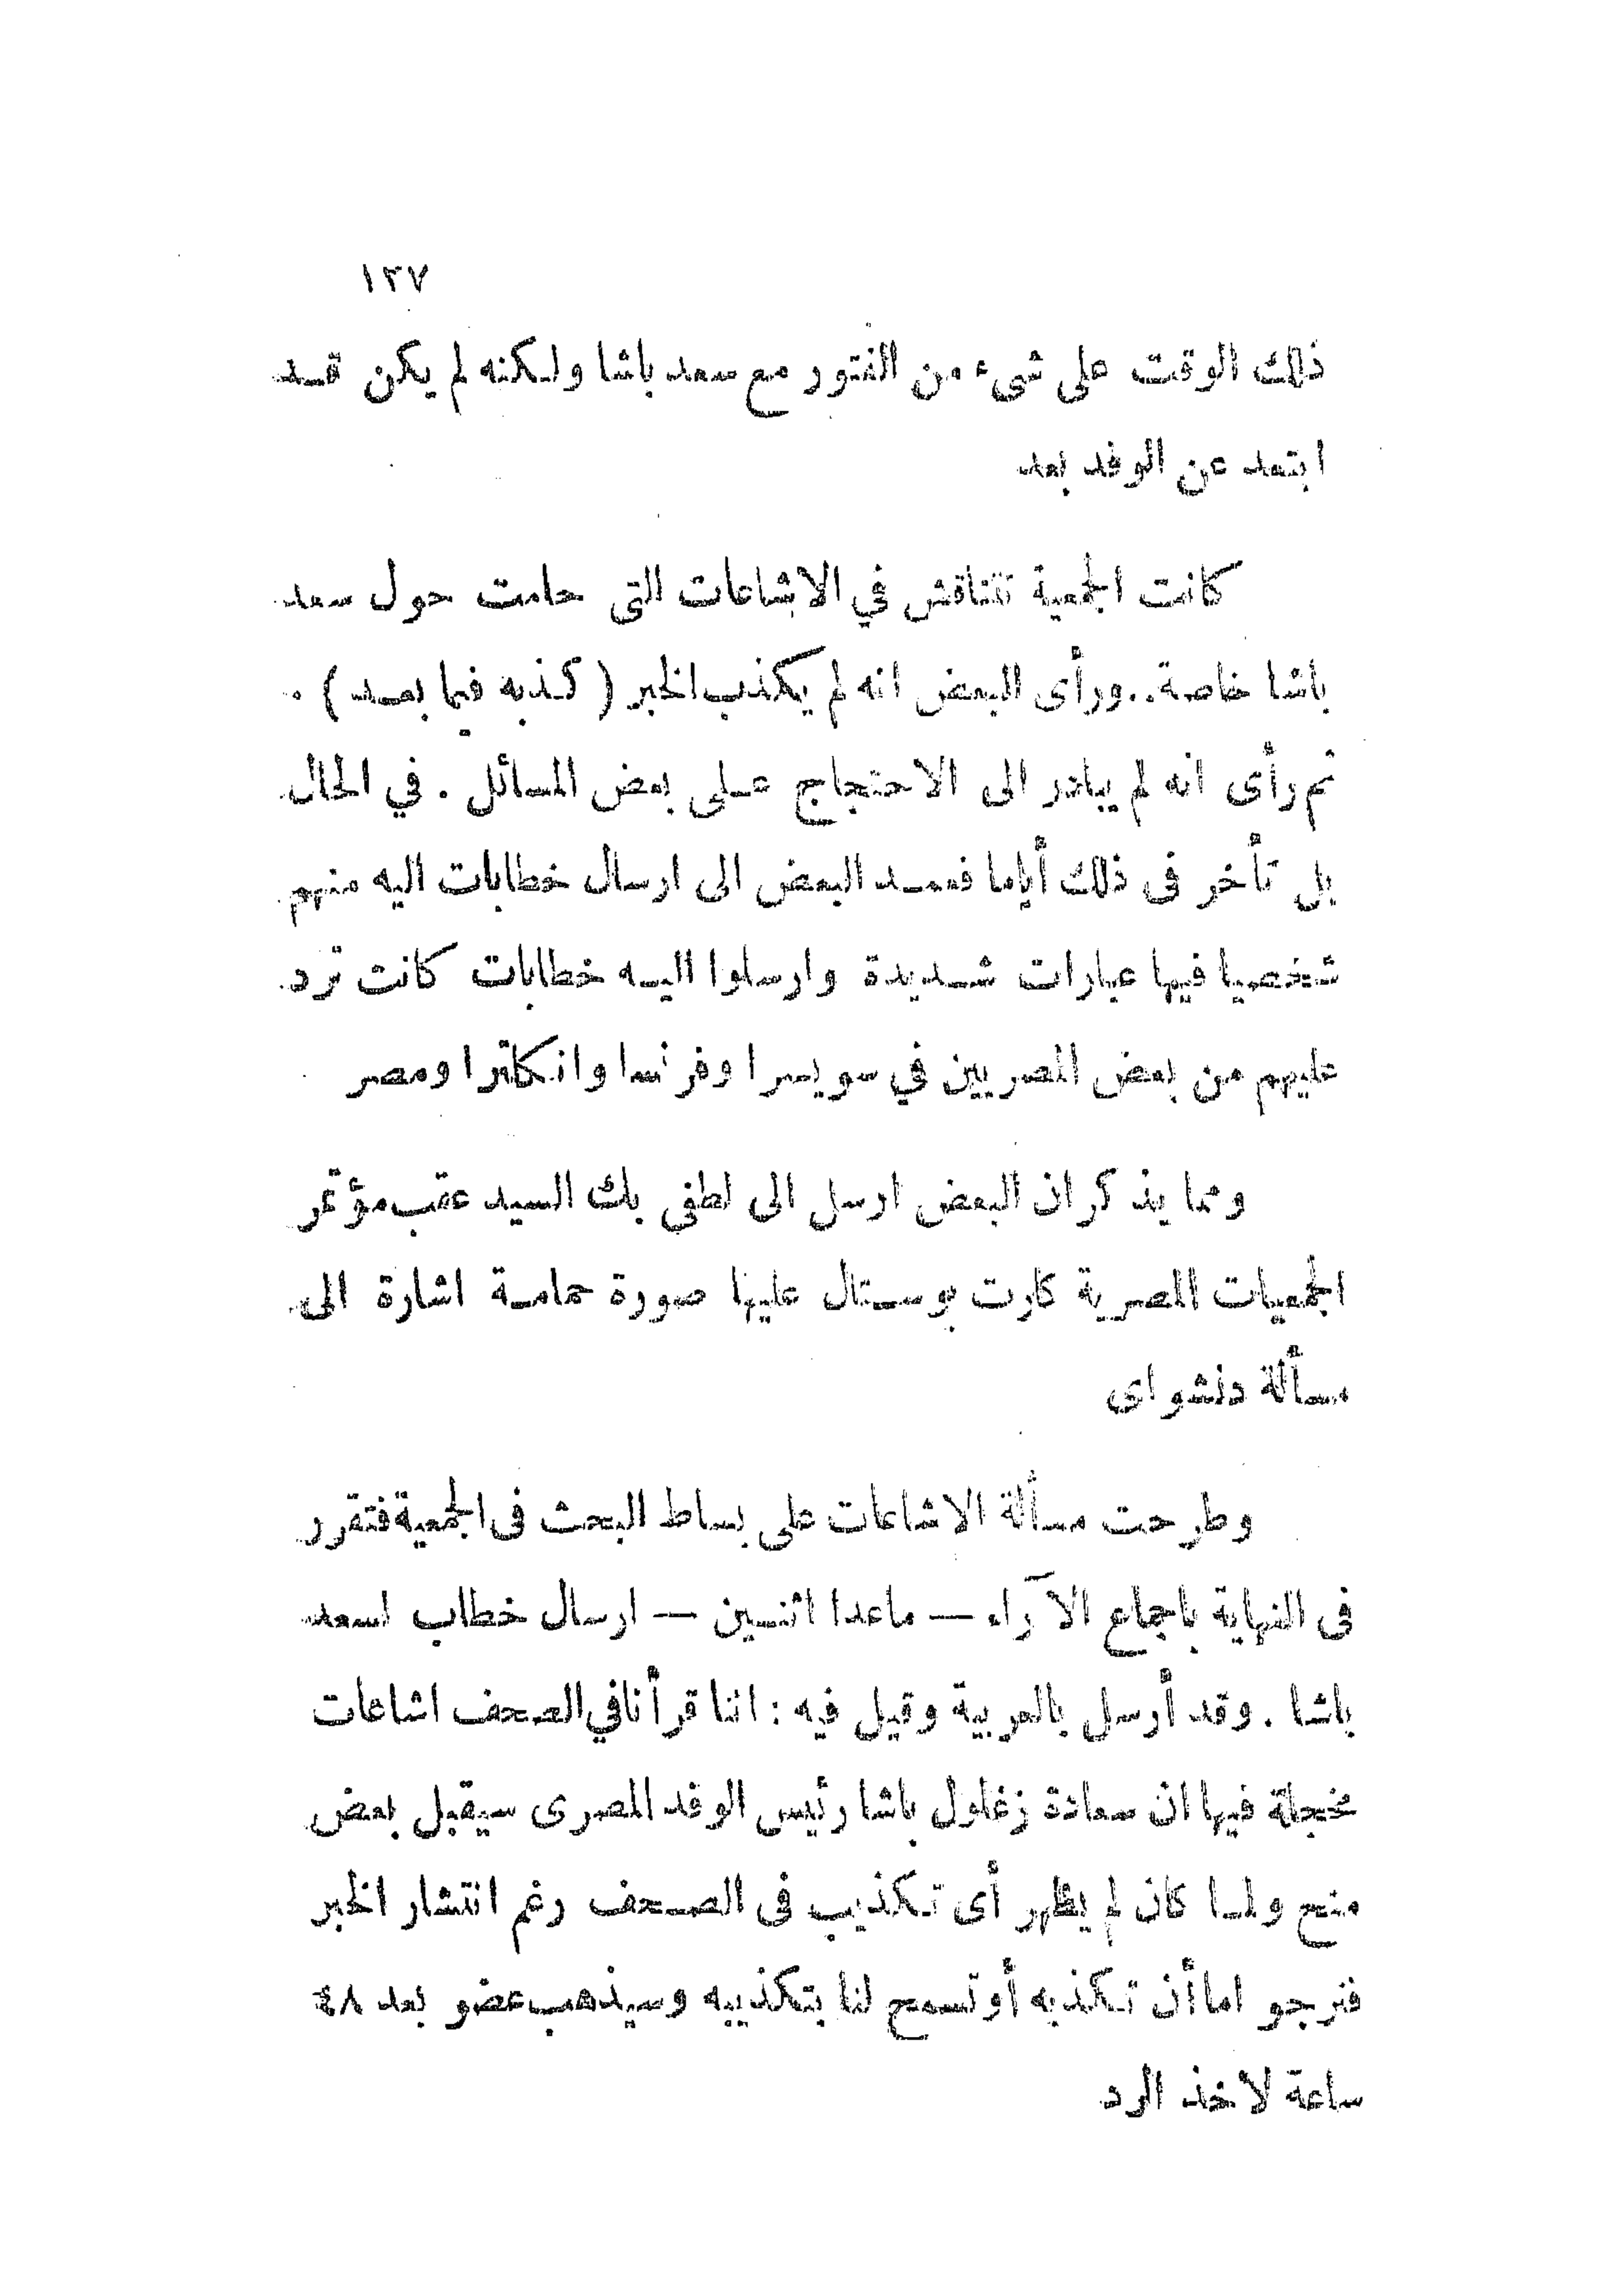 ١٢٧
ذلك الوقت على شىء من الفتور مع سعد باشا ولكنه لم يكن قد
ابتعد عن الوفد بعد
كانت الجمعية تتناقش في الاشاعات التى حامت حول سعد
باشا خاصة..ورأى البعض انه لم يكذب الخبر ( كذبه فيما بعد ) .
ثم رأى انه لم يبادر الى الاحتجاج على بعض المسائل . في الحال
بل تأخر فى ذلك أياما فعمد البعض الى ارسال خطابات اليه منهم
شخصيا فيها عبارات شديدة وارسلوا اليه خطابات كانت ترد
عليهم من بعض المصريين في سويسرا وفرنسا وانكلترا ومصر
ومما يذكر ان البعض ارسل الى لطفى بك السيد عقب مؤتمر
الجمعيات المصرية كارت بوستال عليها صورة حمامة اشارة الى
مسألة دنشواى
وطرحت مسألة الاشاعات على بساط البحث فى الجمعية فتقرر
فى النهاية باجماع الآراء — ماعدا اثنين — ارسال خطاب لسعد
باشا . وقد أرسل بالعربية وقيل فيه : اننا قرأنا في الصحف اشاعات
مخجلة فيها ان سعادة زغلول باشا رئيس الوفد المصرى سيقبل بعض
منح ولما كان لم يظهر أى تكذيب فى الصحف رغم انتشار الخبر
فنرجو اما أن تكذبه أو تسمح لنا بتكذيبه وسيذهب عضو بعد ٤٨
ساعة لاخذ الرد